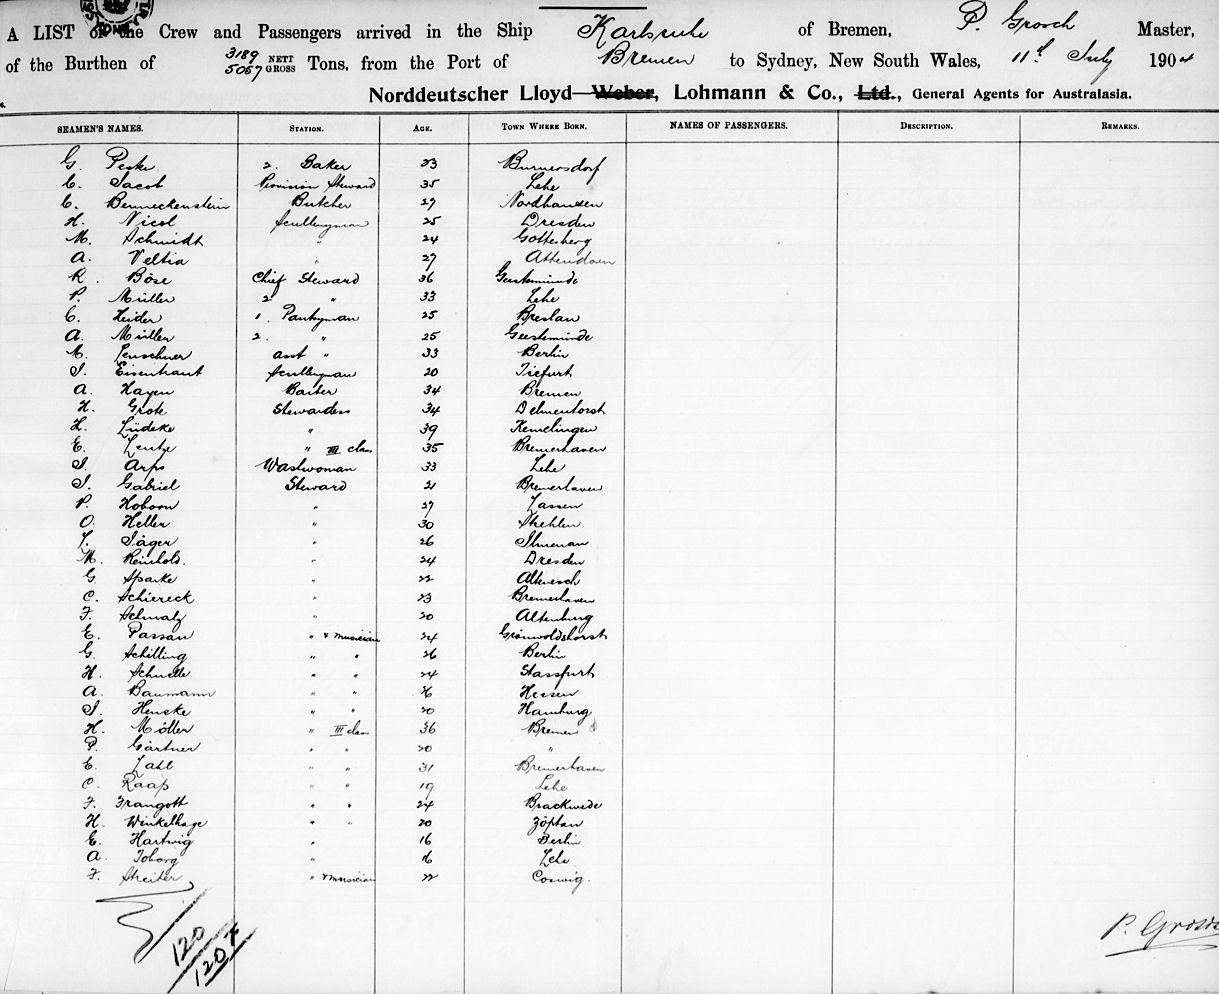 A LIST of the Crew and Passengers arrived in the Ship Karlsruhe of Bremen, P. Grosch Master,
of the Burthen of 3189 NETT 5057 GROSS Tons, from the Port of Bremen to Sydney, New South Wales, 11th July 1904
Norddeutscher Lloyd Weber, Lohmann & Co., Ltd., General Agents for Australasia.
SEAMEN'S NAMES. STATION. AGE. TOWN WHERE BORN. NAMES OF PASSENGERS. DESCRIPTION. REMARKS.
G. Peske 2. Baker 23 Burnersdorf
C. Jacob Provision Steward 35 Lehe
C. Benneckenstein Butcher 27 Nordhausen
H. Nicol Sculleryman 25 Dresden
M. Schmidt " 24 Gottesberg
A. Veltin " 27 Attendorn
R. Böse Chief Steward 36 Geestemünde
P. Müller 2 " 33 Lehe
C. Heider 1. Pantryman 25 Breslau
A. Müller 2. " 25 Geestemünde
M. Lenschner asst " 33 Berlin
J. Eisentraut Sculleryman 20 Tiefurt
A. Hayen Barber 34 Bremen
H. Grote Stewardess 34 Delmenhorst
H. Lüdeke " 39 Hemelingen
E. Lentze " III class 35 Bremerhaven
J. Arps Washwoman 33 Lehe
J. Gabriel Steward 21 Bremerhaven
P. Hoboom " 27 Lassen
O. Heller " 30 Strehlen
L. Jäger " 26 Ilmenau
M. Reinhold. " 24 Dresden
G. Sparke " 22 Altenesch
C. Schiereck " 23 Bremerhaven
F. Schmalz " 20 Altenburg
E. Passau " & musician 24 Grönwoldshorst
G. Schilling " " 26 Berlin
H. Schnelle " " 24 Stassfurt
A. Baumann " " 26 Hessen
J. Henske " " 20 Hamburg
H. Möller " III class 36 Bremen
P. Gärtner " " 20 "
E. Zahl " " 31 Bremerhaven
C. Raap " " 19 Lehe
F. Frangott " " 24 Brackwede
H. Winkelhage " " 20 Zöptau
E. Hartwig " 16 Berlin
A. Toborg " 16 Lehe
F. Streiter " & musician 22 Coswig.
120
120 F
P. Grosch